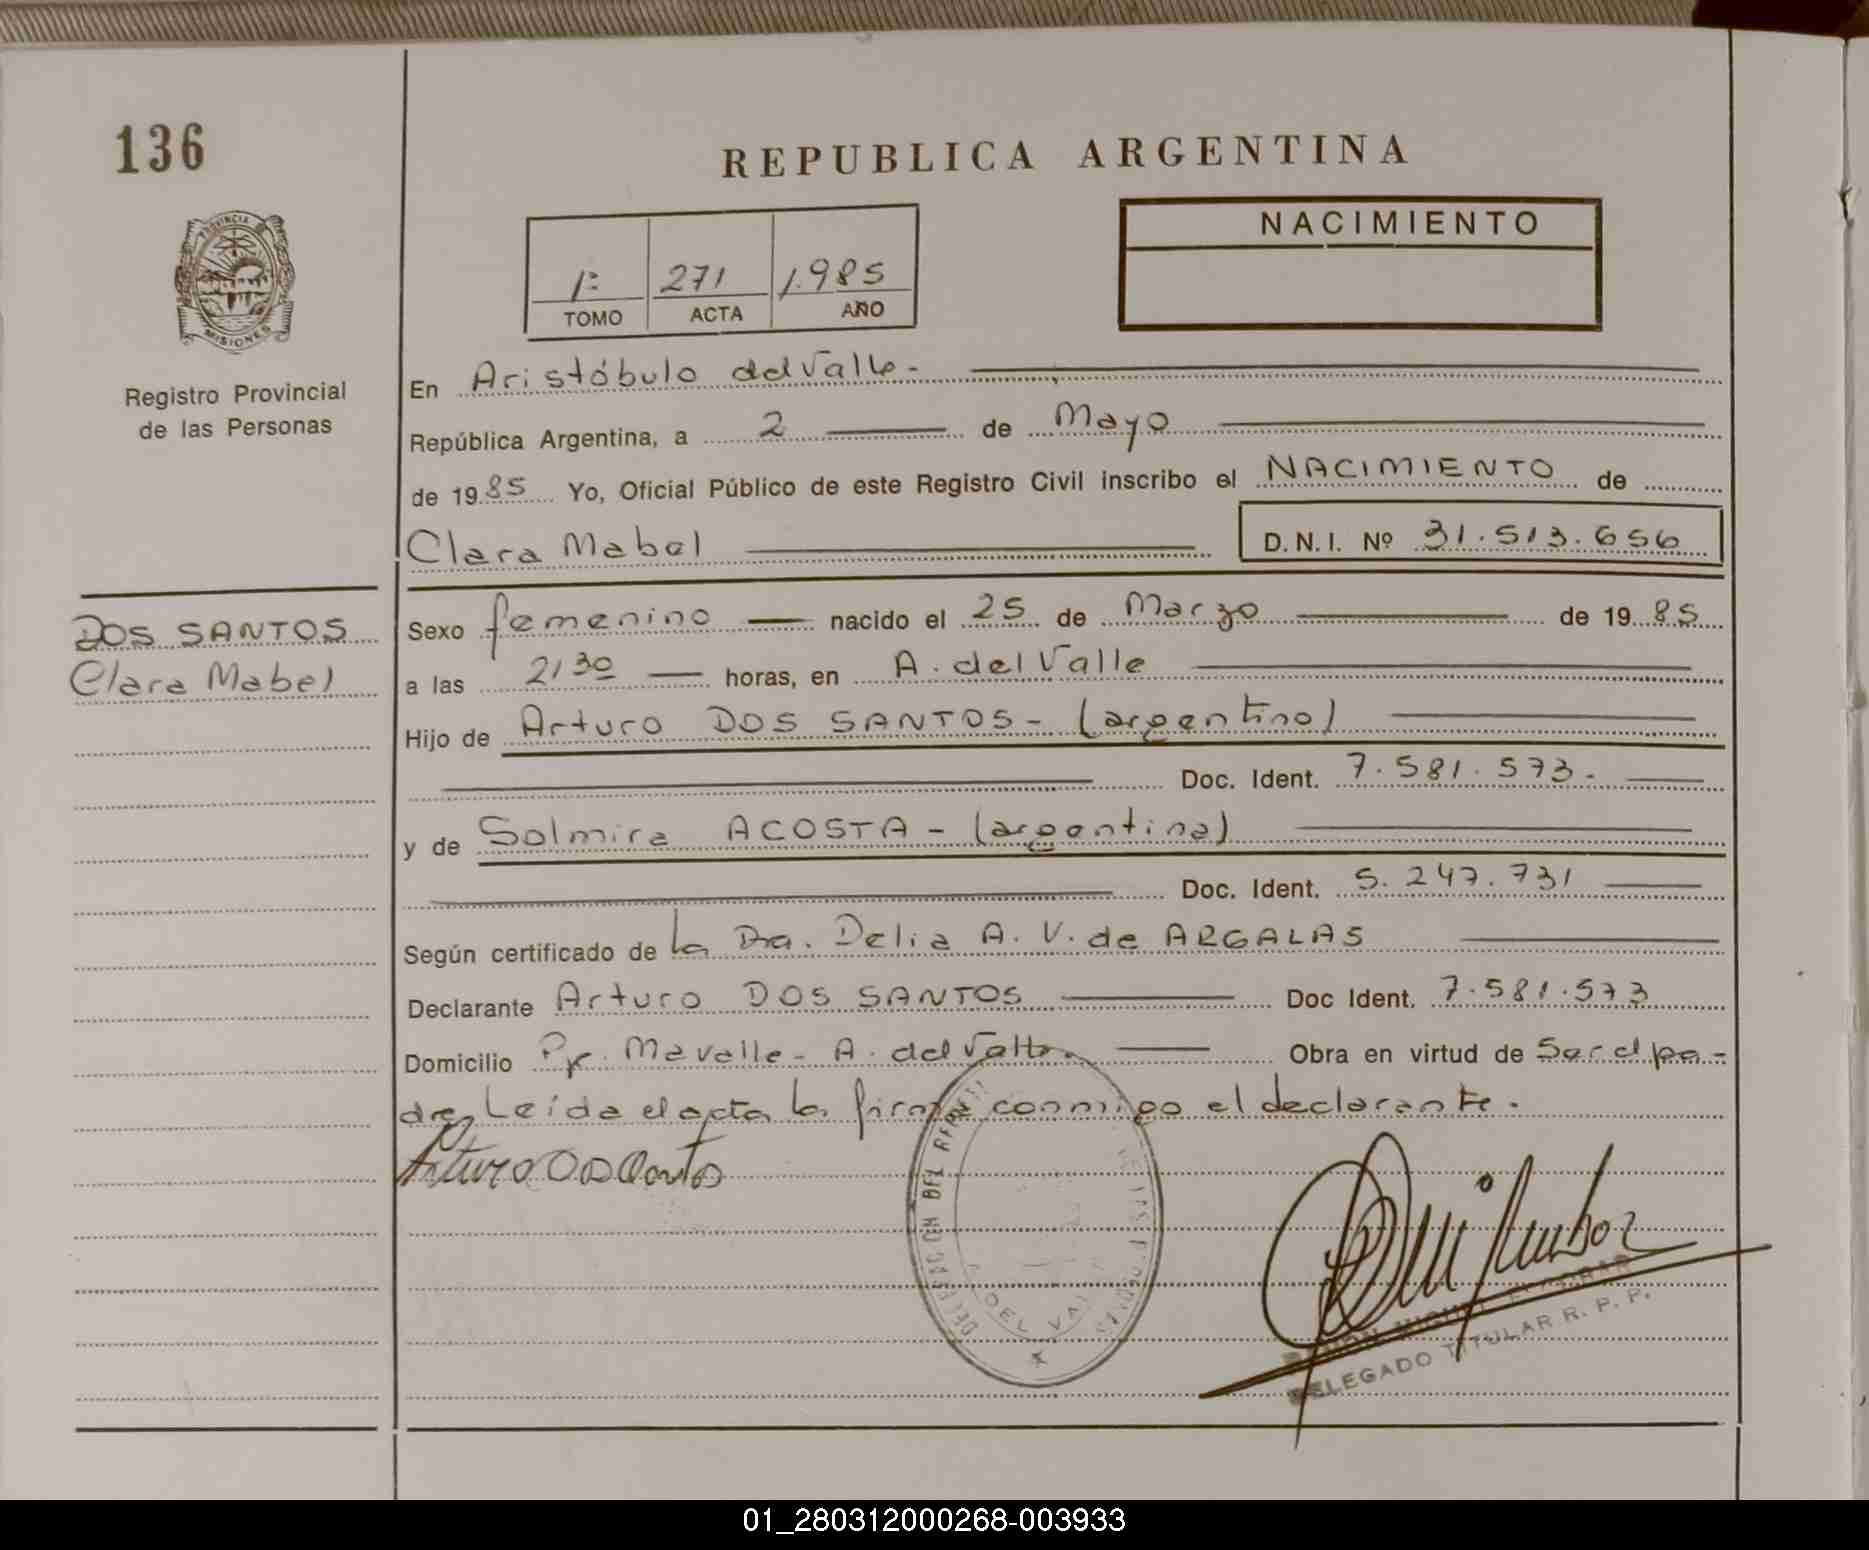 136
REPUBLICA ARGENTINA
PROVINCIA
MISIONES
NACIMIENTO
1º 271 1.985
TOMO ACTA AÑO
Registro Provincial
de las Personas
En Aristóbulo del Valle.
República Argentina, a 2 de Mayo
de 1985 Yo, Oficial Público de este Registro Civil inscribo el NACIMIENTO de
Clara Mabel D.N.I. Nº 31.513.656
DOS SANTOS
Clara Mabel
Sexo femenino nacido el 25 de Marzo de 1985
a las 21 30 horas, en A. del Valle
Hijo de Arturo DOS SANTOS - (argentino)
Doc. Ident. 7.581.573.
y de Solmira ACOSTA - (argentina)
Doc. Ident. 5.247.731
Según certificado de la Dra. Delia A. V. de ARGALAS
Declarante Arturo DOS SANTOS Doc Ident. 7.581.573
Domicilio Mavalle - A. del Valle. Obra en virtud de Ser el pa-
dre, Leída el acta la firma conmigo el declarante.
Arturo Dos Santos
DEL VAL
DELEGADO TITULAR R. P. P.
01_280312000268-003933